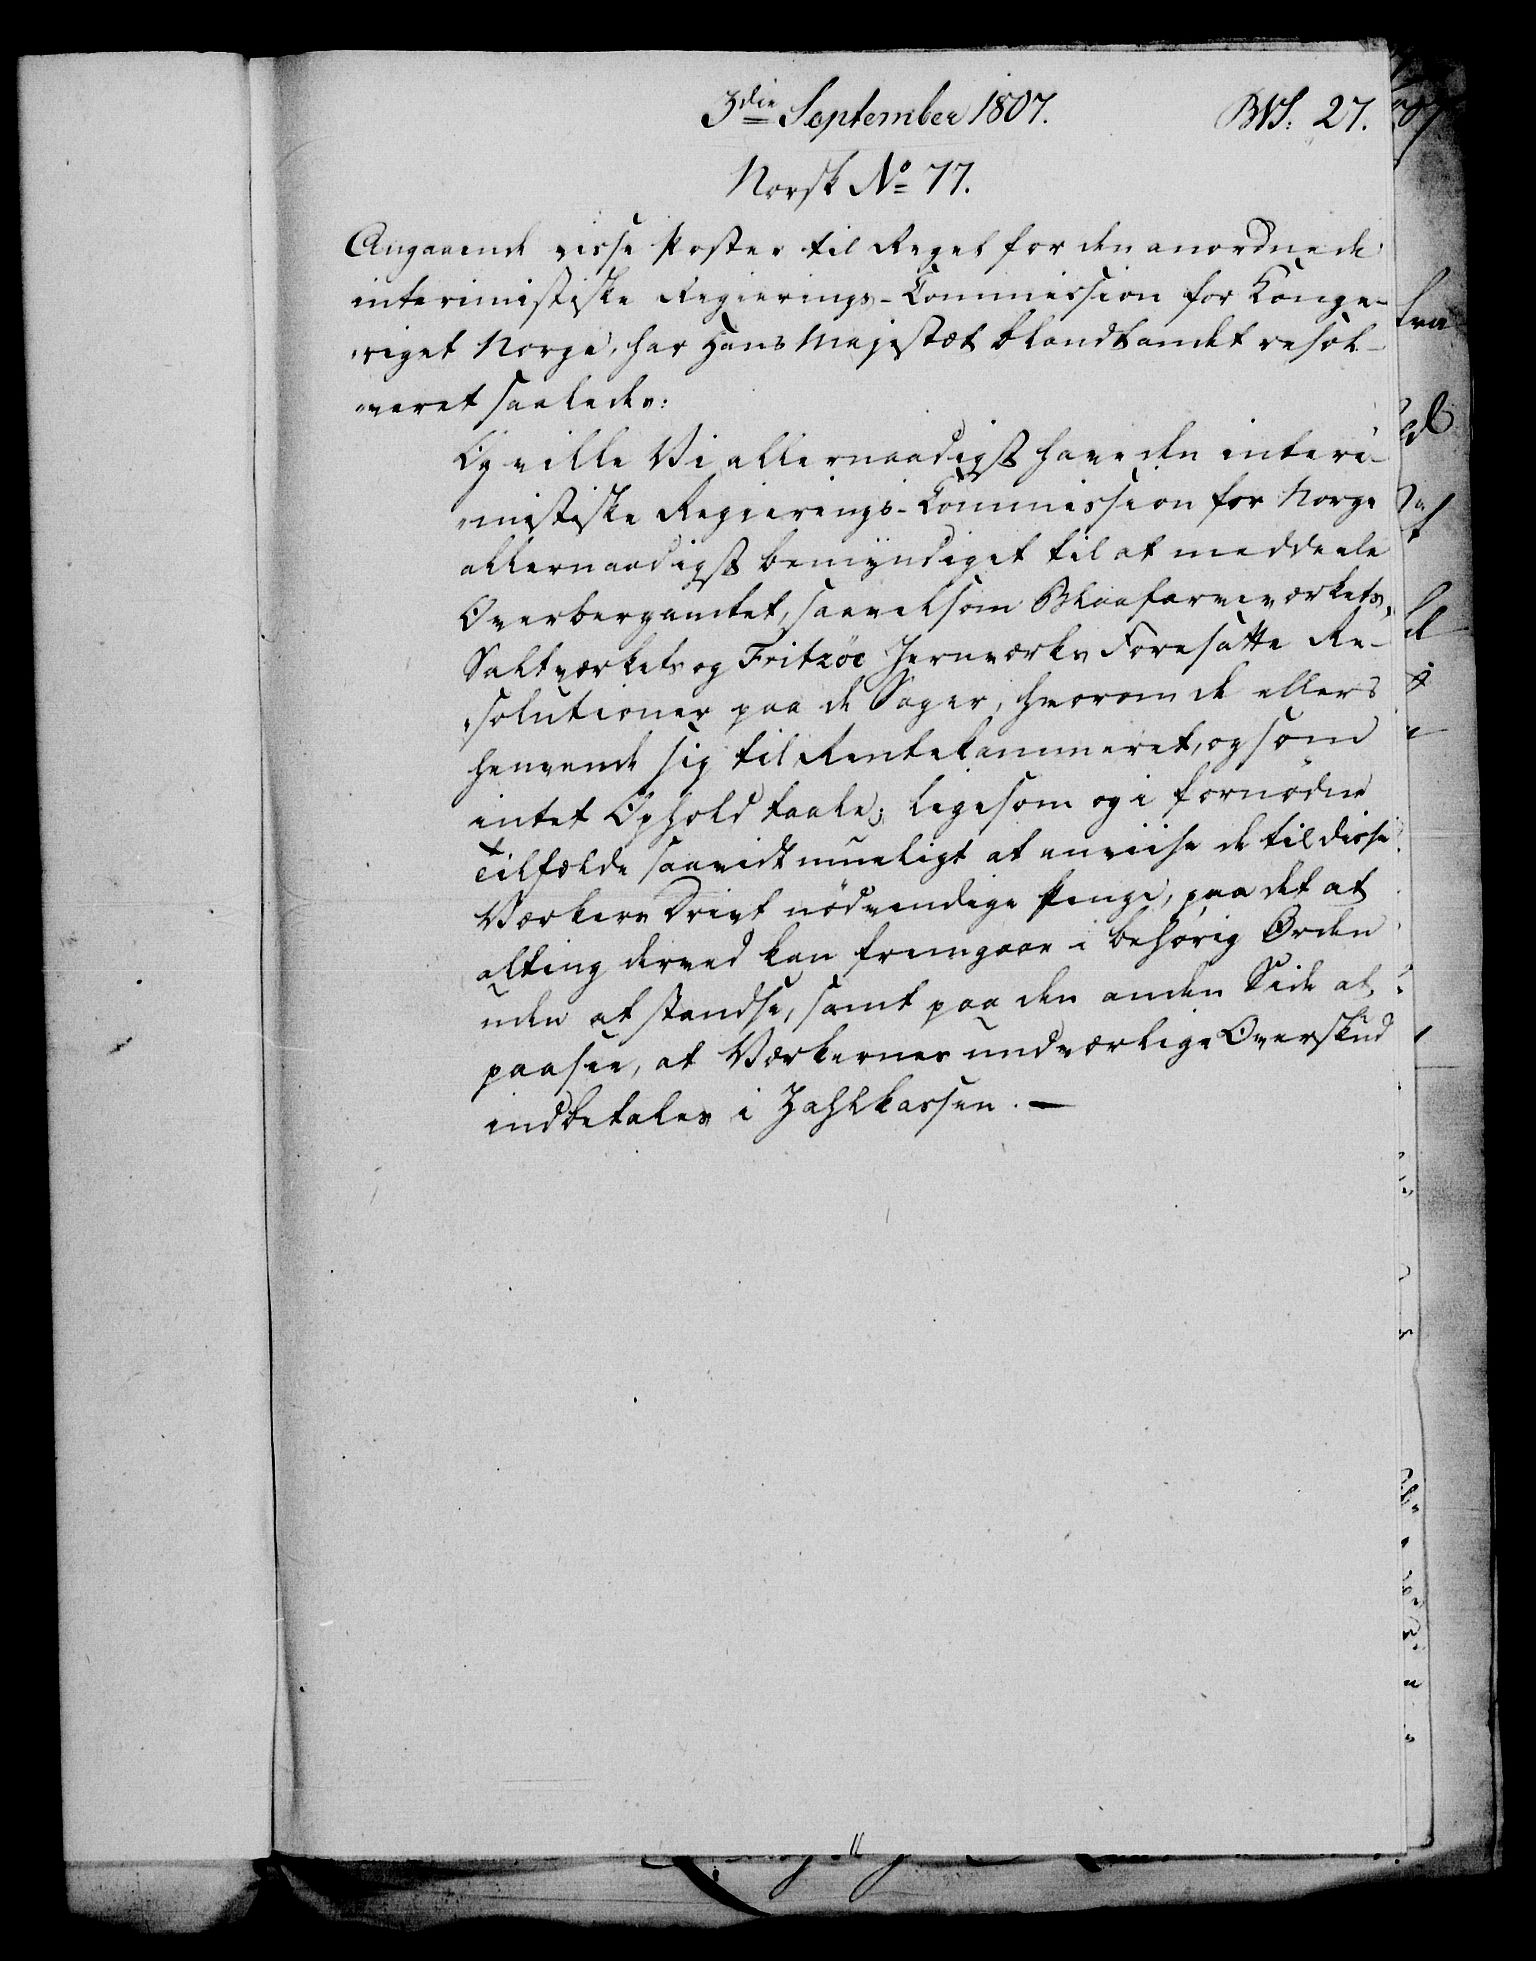 3die September 1807.
BVS: 27.
Norsk No 77.
Angaaende visse Poster til Regel for den anordnede
interimistiske Regierings-Commission for Konge-
riget Norge, har Hans Majestæt blandt andet resol-
veret saaledes:
Og ville Vi allernaadigst have den interi-
mistiske Regierings-Commission for Norge
allernaadigst bemÿndiget til at meddeele
Overbergamtet, saavelsom Blaafarveværkets,
Saltværkets og Fritzöe Jernværks Foresatte Re-
solutioner paa de Sager, hvorom de ellers
henvende sig til Rentekammeret, og som
intet Ophold taale; ligesom og i fornødne
Tilfælde saavidt mueligt at anviise de til disse
Værkers Drivt nödvendige Penge, paa det at
alting derved kan fremgaae i behørig Orden
uden at standse, samt paa den anden Side at
paasee, at Værkernes undværlige Overskud
indbetales i Zahlkassen. —